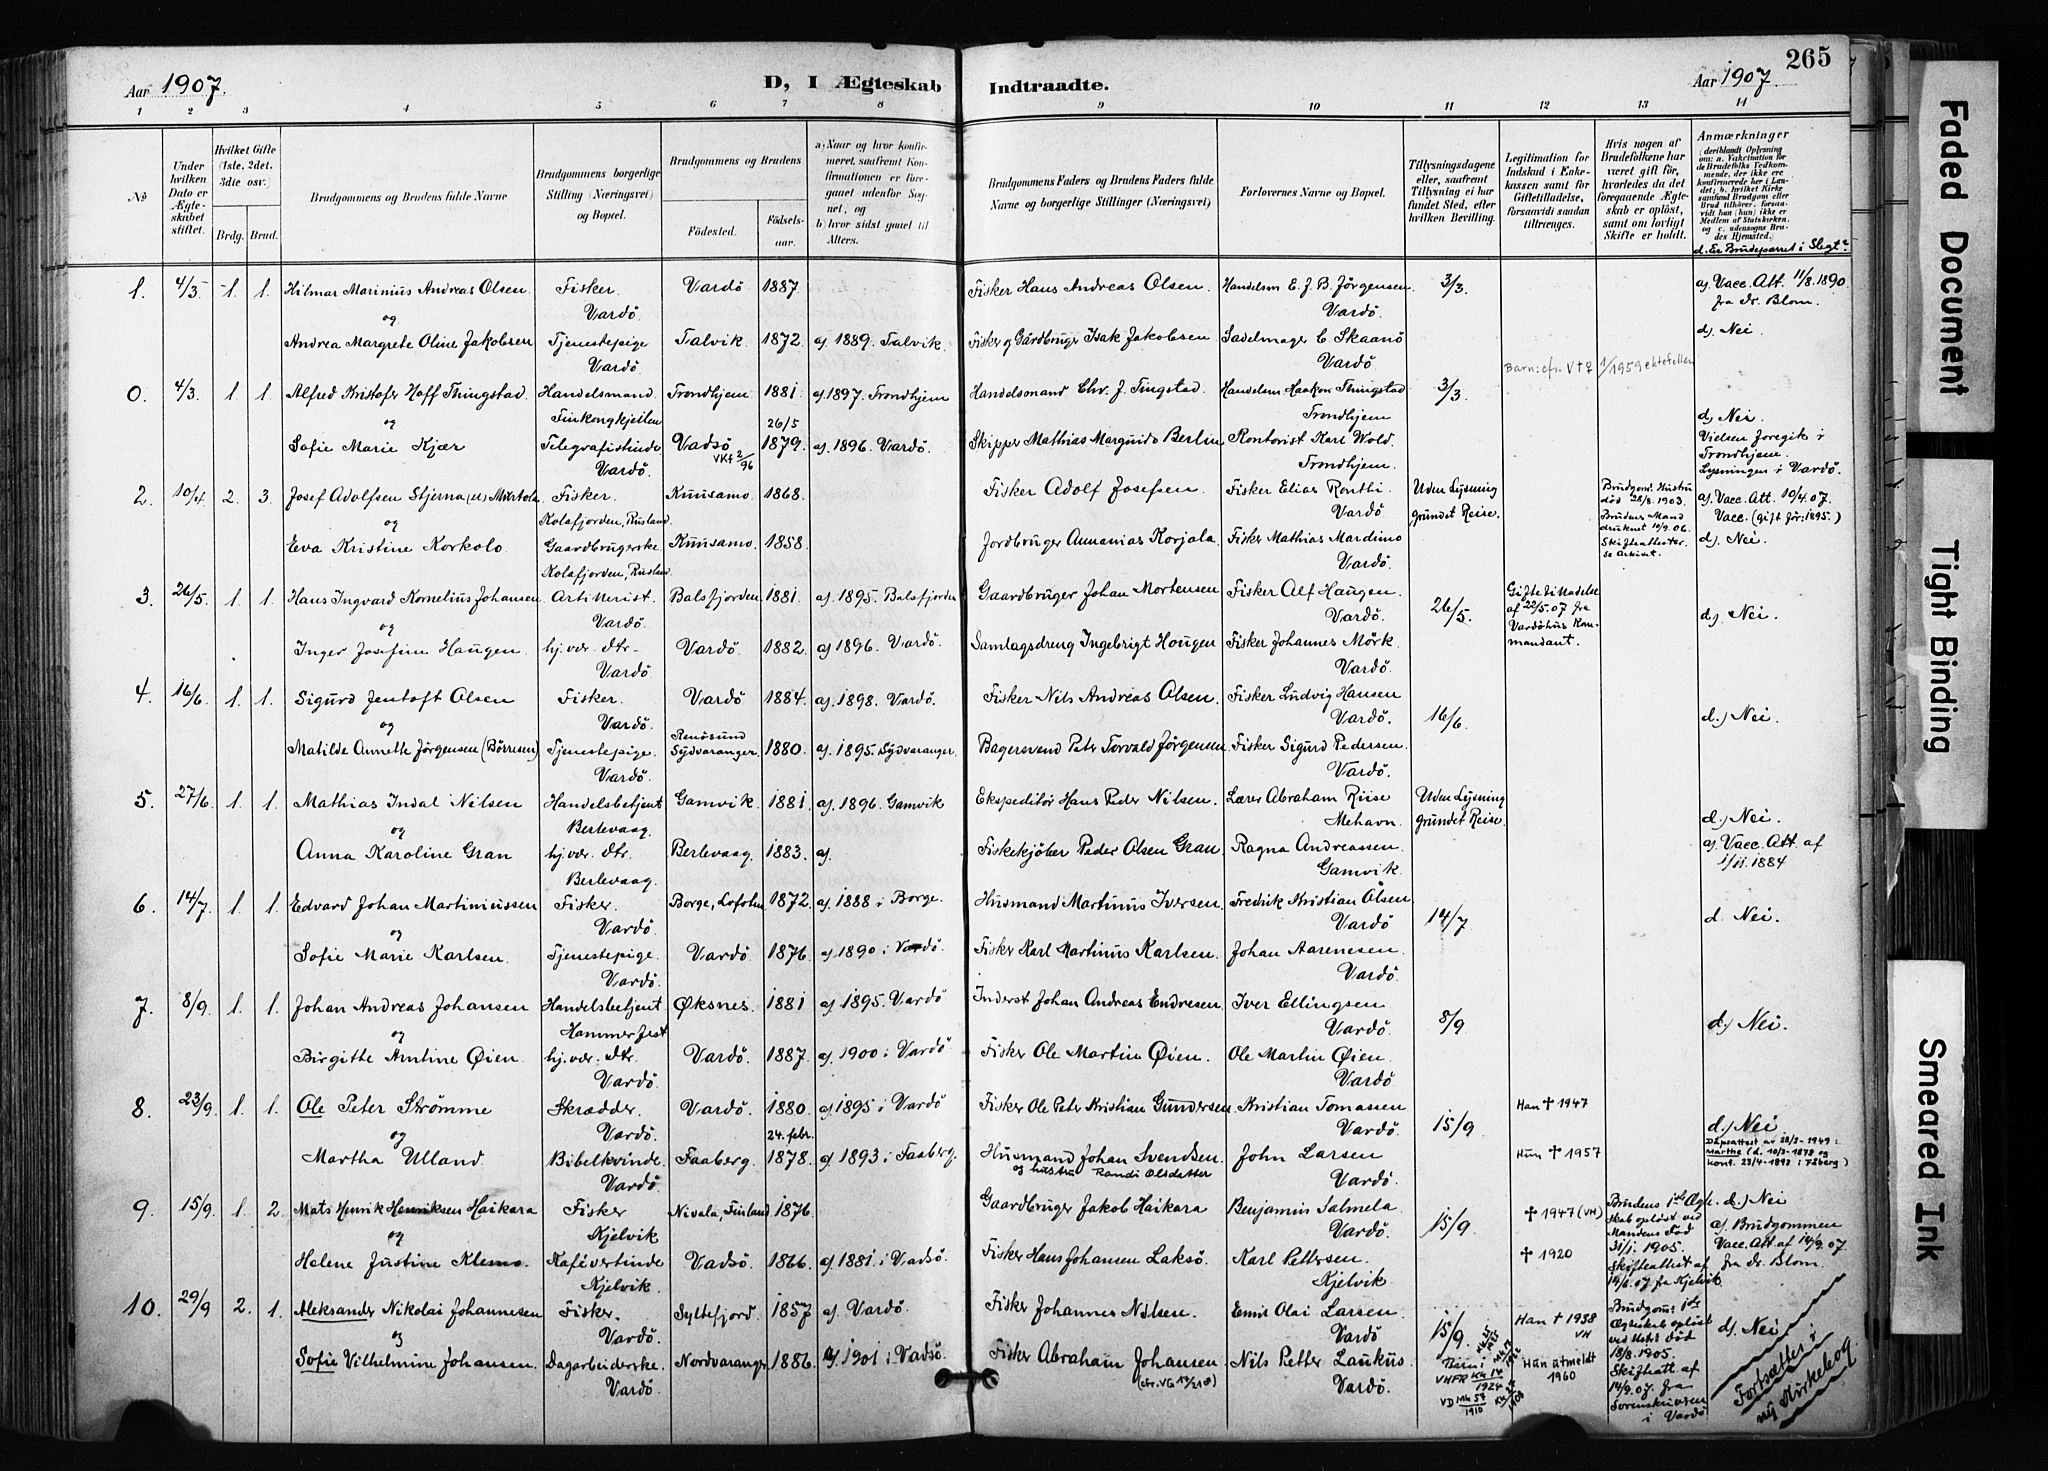 265
Aar 1907.
D, I Ægteskab Indtraadte.
Aar 1907.
1 2 3 4 5 6 7 8 9 10 11 12 13 14
No
Under hvilken Dato er Ægteskabet stiftet.
Hvilket Gifte (1ste, 2det, 3die osv.)
Brdg. Brud.
Brudgommens og Brudens fulde Navne
Brudgommens borgerlige Stilling (Næringsvei) og Bopæl.
Brudgommens og Brudens
Fødested.
Fødselsaar.
a) Naar og hvor konfirmeret, saafremt Konfirmationen er foregaaet udenfor Sognet, og
b) hvor sidst gaaet til Alters.
Brudgommens Faders og Brudens Faders fulde Navne og borgerlige Stillinger (Næringsvei)
Forlovernes Navne og Bopæl.
Tillysningsdagene eller, saafremt Tillysning ei har fundet Sted, efter hvilken Bevilling.
Legitimation for Indskud i Enkekassen samt for Giftetilladelse, forsaavidt saadan tiltrænges.
Hvis nogen af Brudefolkene har været gift før, hvorledes da det foregaaende Ægteskab er opløst, samt om lovligt Skifte er holdt.
Anmærkninger
(deriblandt Oplysning om: a. Vakcination for de Brudefolks Vedkommende, der ikke ere konfirmerede her i Landet; b. hvilket Kirkesamfund Brudgom eller Brud tilhører, forsaavidt han (hun) ikke er Medlem af Statskirken, og c. udensogns Brudes Hjemsted.)
d. Er Brudeparret i Slegt?
1. 4/3 1. 1. Hilmar Marinius Andreas Olsen Fisker. Vardö 1887. Fisker Hans Andreas Olsen. Handelsm E. J. B. Jörgensen 3/3. a) Vacc. Att. 11/8.1890
og Vardö. Vardö. fra Dr. Blom.
Andrea Margrete Oline Jakobsen Tjenestepige Talvik. 1872. a) 1889. Talvik. Fisker og Gårdbruger Isak Jakobsen Sadelmager C. Skaanö d) Nei.
Vardö. Vardö.
Barn: cfr. V+2 1/1959 ektefeller
0. 4/3. 1. 1. Alfred Kristofer Hoff Thingstad. Handelsmand. Trondhjem 1881. a) 1897. Trondhjem Handelsmand Chr. J. Tingstad. Handelsm Haakon Thingstad 3/3.
og Finkongkjeilen 26/5 Trondhjem d) Nei.
Sofie Marie Kjær Telegrafistinde Vadsö 1879. a) 1896. Vardö. Skipper Mathias Margido Berlin Kontorist Karl Wold. Vielsen foregik i
Vardö. VKf 2/96 Trondhjem. Trondhjem.
Lysningen i Vardö.
2. 10/4 2. 3. Josef Adolfsen Stjerna Fisker. Kuusamo. 1868. Fisker Adolf Josefsen. Fisker Elias Ronthi Uden Lysning Brudgoms Hustru a) Vacc. Att. 10/4.07.
og Kolafjorden, Rusland Vardö. grundet Reise. död 28/8.1903. Vacc. (gift för: 1895.)
Eva Kristine Korkolo. Gaardbrugerske Kuusamo. 1858. Jordbruger Annanias Korjala. Fisker Mathias Mardimo Brudens Mand druknet 19/9.06. d) Nei.
Kolafjorden, Rusland Vardö. Skifteattester se Arkivet.
3. 26/5. 1. 1. Hans Ingvard Kornelius Johansen Artillerist. Balsfjorden. 1881. a) 1895. Balsfjorden Gaardbruger Johan Mortensen Fisker Alf Haugen. 26/5. Giftetilladelse
og Vardö. Vardö. af 22/5.07 fra d) Nei.
Inger Josefine Haugen. hj.vær. dtr. Vardö. 1882. a) 1896. Vardö. Samlagsdreng Ingebrigt Hougen Fisker Johannes Mörk. Vardöhus Kommandant.
Vardö. Vardö.
4. 16/6. 1. 1. Sigurd Jentoft Olsen Fisker. Vardö 1884. a) 1898. Vardö. Fisker Nils Andreas Olsen. Fisker Ludvig Hansen 16/6. d.) Nei.
og Vardö. Vardö.
Matilde Annette Jörgensen (Börresen) Tjenestepige. Renösund Sydvaranger. 1880. a) 1895. Sydvaranger. Bagersvend Peter Torvald Jörgensen. Fisker Sigurd Pedersen.
Vardö. Vardö.
5. 27/6. 1. 1. Mathias Indal Nilsen Handelsbetjent Gamvik. 1881. a) 1896. Gamvik Ekspeditör Hans Peder Nilsen. Lærer Abraham Riise Uden Lysning
og Berlevaag. Mehavn. grundet Reise. d.) Nei.
Anna Karoline Gran hj.vær. dtr. Berlevaag. 1883. a) Fiskekjöber Peder Olsen Gran Ragna Andreassen a) Vacc. Att. af
Berlevaag. Gamvik. 1/11.1884
6. 14/7. 1. 1. Edvard Johan Martiniussen Fisker. Borge, Lofoten 1872. a) 1888 i Borge. Husmand Martinus Iversen. Fredrik Kristian Olsen 14/7 d. Nei.
og Vardö. Vardö
Sofie Marie Karlsen. Tjenestepige. Vardö. 1876. a) 1890 i Vardö. Fisker Karl Martinus Karlsen. Johan Aarenesen
Vardö. Vardö.
7. 8/9. 1. 1. Johan Andreas Johansen Handelsbetjent Øksnes. 1881 a) 1895. Vardö Inderst Johan Andreas Endresen. Iver Ellingsen 8/9. d) Nei.
og Hammerfest Vardö.
Birgithe Amtine Øien. hj.vær. dtr. Vardö. 1887. a) 1900 i Vardö Fisker Ole Martin Øien. Ole Martin Øien.
Vardö. Vardö
8. 23/9. 1. 1. Ole Peter Strömme Skrædder. Vardö. 1880. a) 1895 i Vardö Fisker Ole Peter Kristian Gundersen. Kristian Tomassen 15/9 Han † 1947
og Vardö. 24. febr. Vardö. d.) Nei
Martha Ulland. Bibelkvinde. Faaberg. 1878. a) 1893 i Faaberg. Husmand Johan Svendsen. John Larsen Hun † 1957 Dåpsattest av 28/3-1949:
Vardö. og hustru Randi Olsdatter Vardö. Marthe (d. 10/3-1878 og konf. 23/4-1893 i Fåberg)
9. 15/9. 1. 2. Mats Henrik Henriksen Haikara Fisker Nivala, Finland 1876. Gaardbruger Jakob Haikara Benjamin Salmela 15/9. † 1947 (VH) Brudens 1ste Ægteskab oplöst ved d.) Nei
og Kjelvik Vardö. Mandens Död a) Brudgommen
Helene Justine Klemo. Kaféværtinde Vadsö. 1866 a) 1881 i Vadsö. Fisker Hans Johansen Laksö. Karl Pettersen. † 1920 31/1. 1905. Skifteattest af Vacc. Att af 14/9.07.
Kjelvik. Kjelvik 14/8.07 fra Kjelvik fra Dr. Blom.
10. 29/9 2. 1. Aleksander Nikolai Johannesen Fisker. Syltefjord. 1857 a) Vardö. Fisker Johannes Nilsen. Emil Olai Larsen 15/9. Han † 1938 VH Brudgoms 1ste Ægteskab oplöst d) Nei
og Vardö. Vardö ved Hustr död 18/8.1905.
Sofie Vilhelmine Johansen. Dagarbeiderske. Nordvaranger 1886. a) 1901 i Vadsö. Fisker Abraham Johansen Nils Petter Laukus. Barn: VHFR Hun utmeldt 1960 Skifteatt. af 14/9.07. fra Sorenskriveren i Vardö
Vardö. (cfr. VG 14/218) Vardö. 1924 VD Mk 54 1910
Fortsættes i ny Kirkebog.
Faded Document
Tight Binding
Smeared Ink